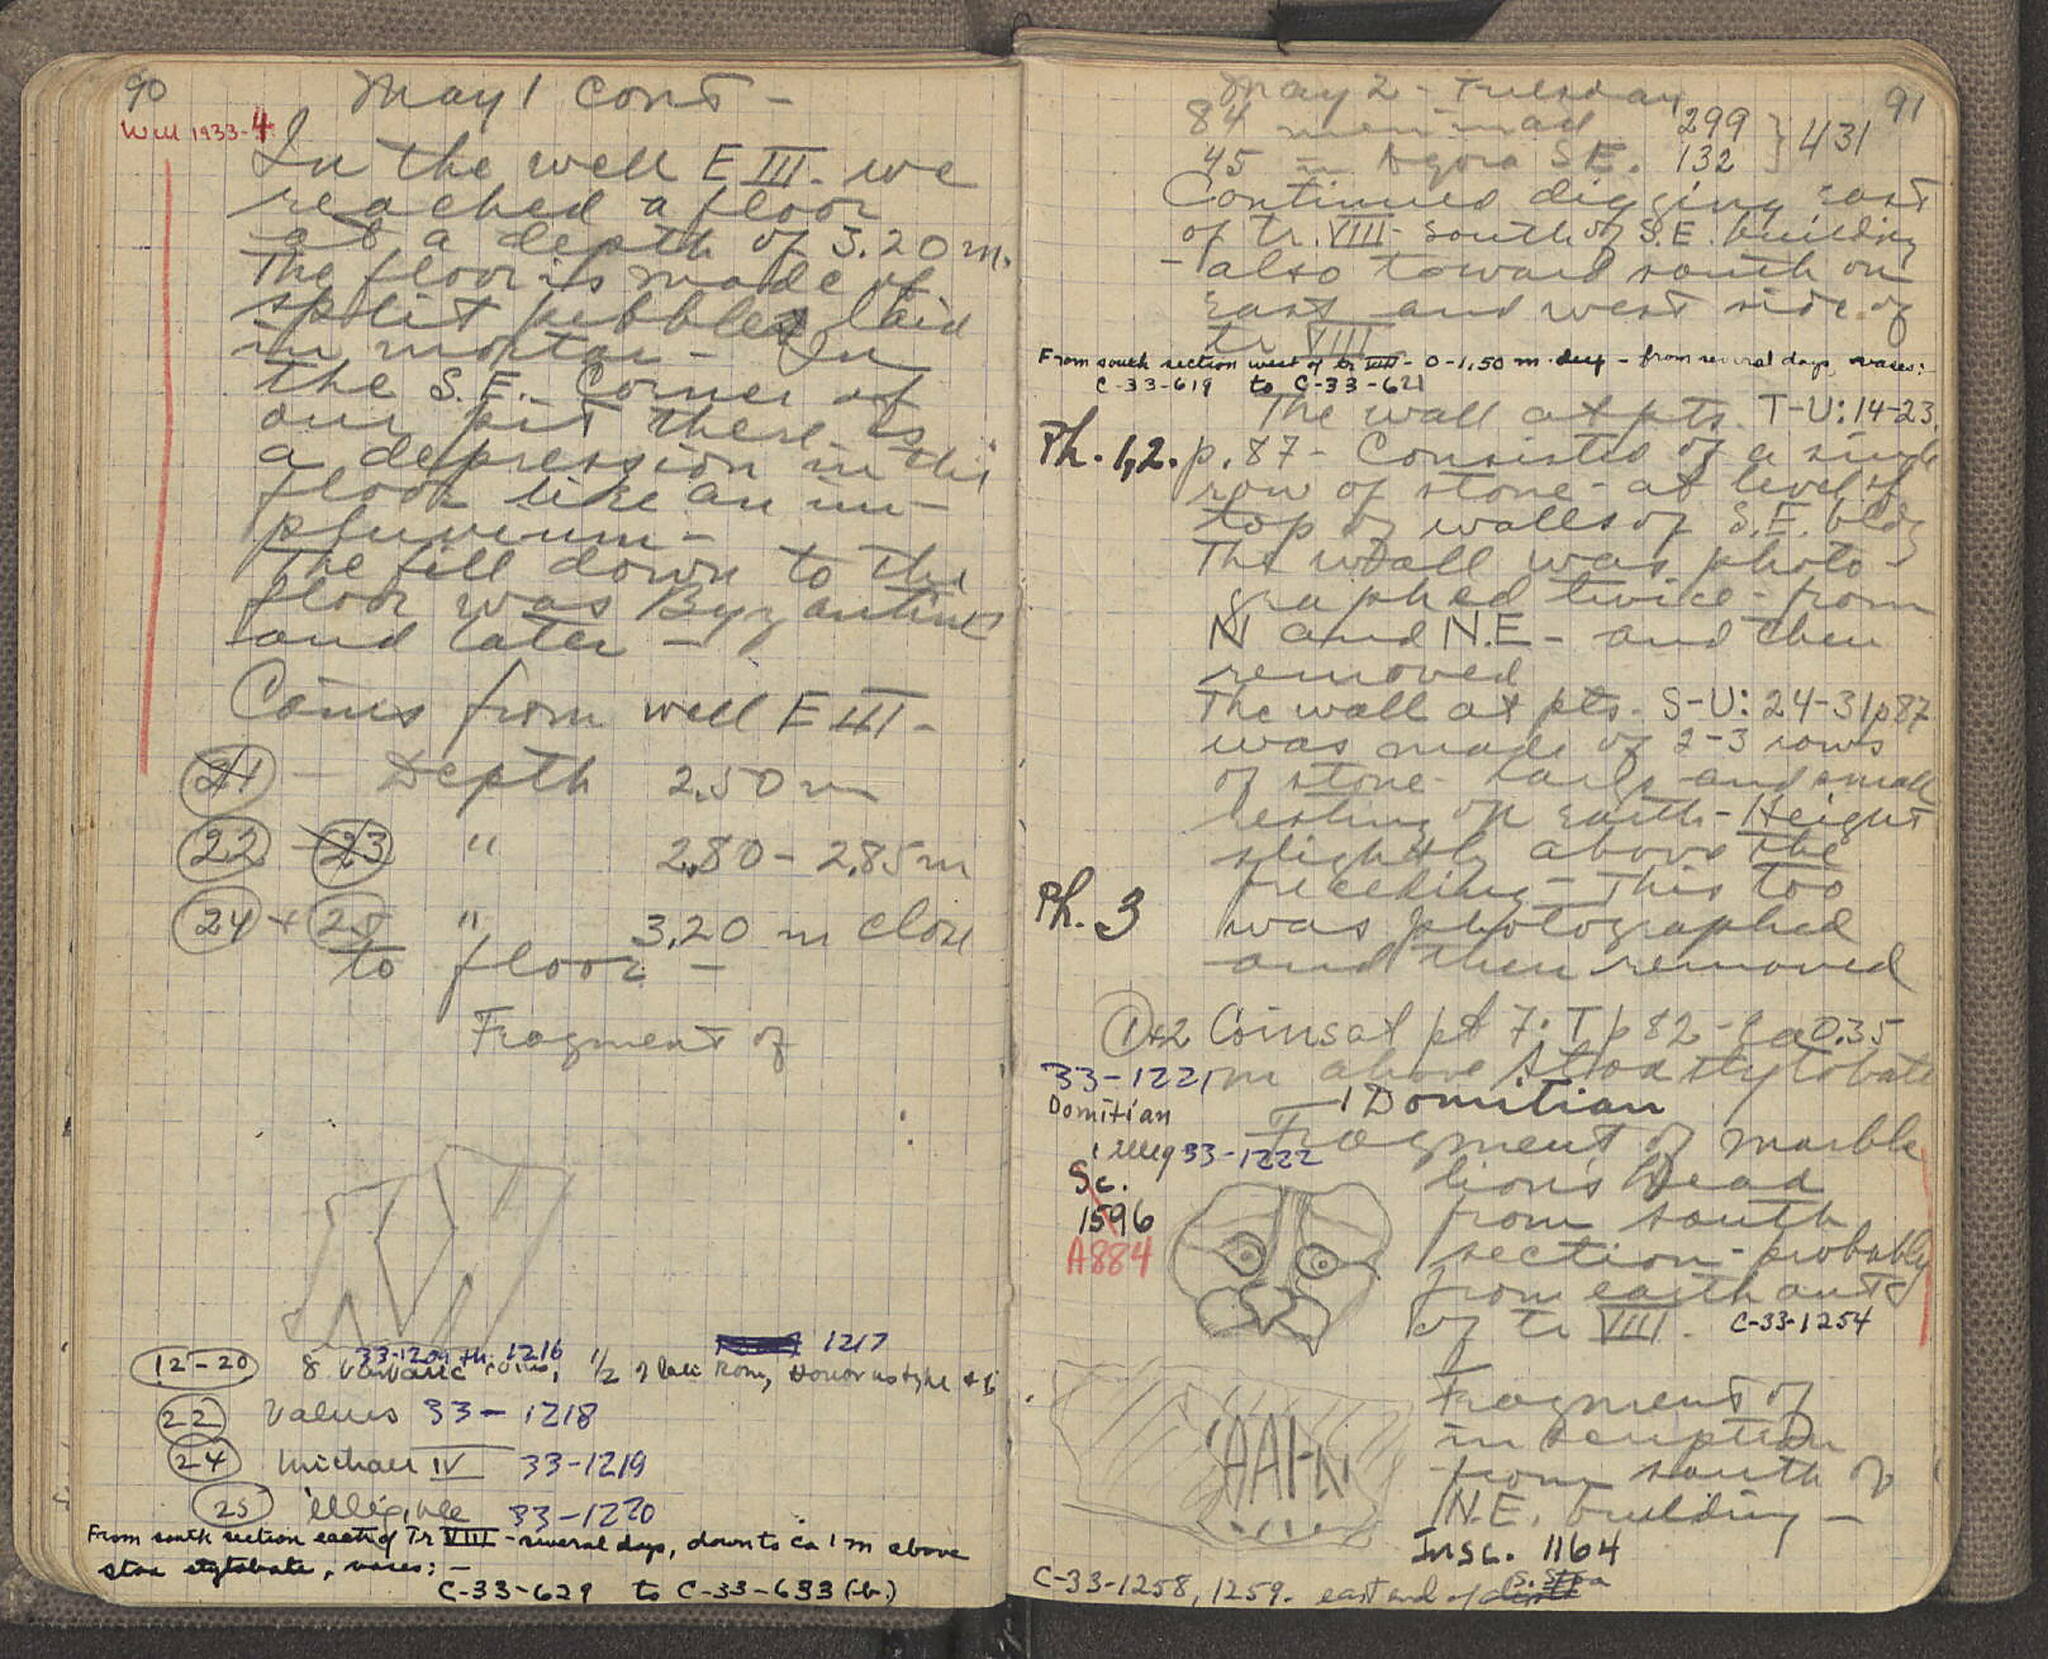 90
May 1 cont -
Well 1933-4
In the well E III. we
reached a floor
at a depth of 3.20 m.
The floor is made of
split pebbles laid
in mortar - In
the S.E. Corner of
our pit there is
a depression in the
floor like an im-
pluvium -
The fill down to the
floor was Byzantine
and later -
Coins from well E III -
21 - Depth 2.50 m
22 - 23 " 2.80 - 2.85 m
24 + 25 " 3.20 m close
to floor -
Fragment of
33-1209 to 1216 1217
12-20 8 Vandalic coins, 1/2 of late Rom,
22 Valens 33-1218
24 Michael IV 33-1219
25 illegible 33-1220
From south section east of Tr VIII - several days, down to ca 1 m above
stoa stylobate, vases: -
C-33-629 to C-33-633 (b.)
91
May 2 - Tuesday
84 men in all 299 } 431
45 " " Agora S.E. 132
Continued digging east
of tr. VIII - south of S.E. building
- also toward south on
east and west side of
tr VIII
From south section west of tr VIII - 0-1.50 m deep - from several days, vases: -
C-33-619 to C-33-621
The wall at pts. T-U: 14-23,
Ph. 1,2. p. 87 - Consisted of a single
row of stone - at level of
top of walls of S.E. bldg
The wall was photo-
graphed twice - from
N and N.E - and then
removed
The wall at pts. S-U: 24-31 p 87
was made of 2-3 rows
of stone - large and small
resting on earth - Height
slightly above the
preceding - This too
Ph. 3 was photographed
and then removed
1+2 Coins at pt 7: T p 82 - ca 0.35
33-1221 m above stoa stylobate
Domitian - 1 Domitian
1 illeg 33-1222
Fragment of marble
lion's head
from south
section - probably
from earth out
of tr VIII. C-33-1254
Sc.
1596
A884
Fragment of
inscription
from south of
N.E. building -
Insc. 1164
C-33-1258, 1259. east end of S. Stoa